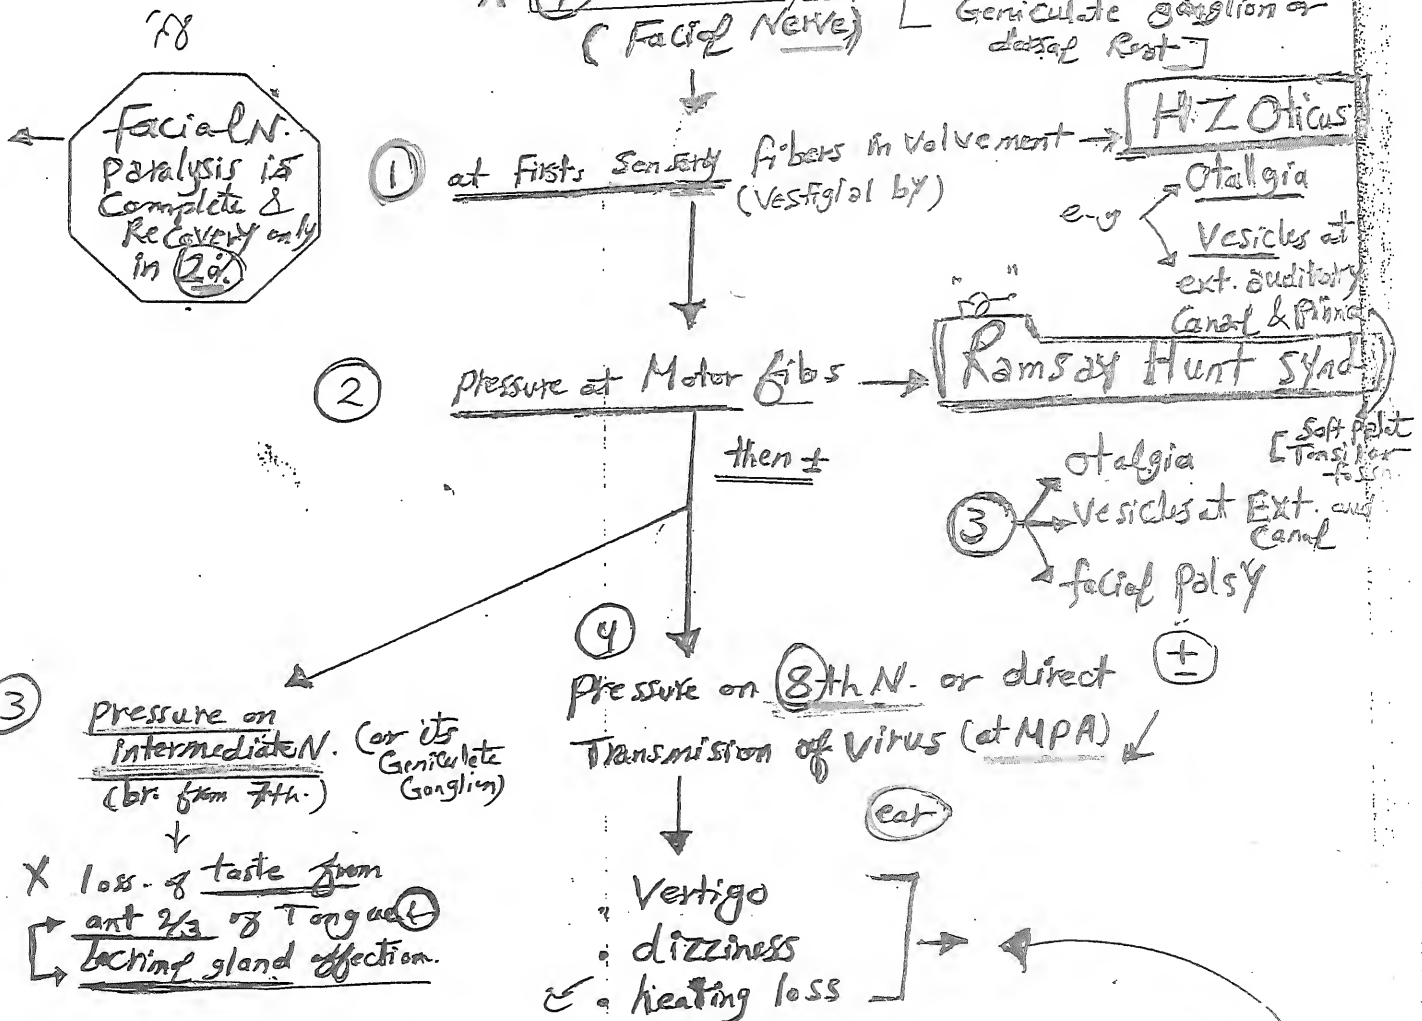 (Facial Nerve)
Geniculate ganglion or
dorsal Root]
Facial N.
paralysis is
Complete &
Recovery only
in
HZ Oticus
① at Firsts Sensory fibers involvement
(Vestigial by)
e.g
Otallgia
Vesicles at
ext. auditory
Canal & Pinna
② pressure at Motor fibs
Ramsay Hunt synd
then ±
[Soft palat
Tonsilar
fossa
③
otalgia
Vesicles at Ext. aud
Canal
facial palsy
±
④
pressure on 8th N. or direct
Transmision of Virus (at MPA)
3
pressure on
intermediate N. (or its
Geniculete
Ganglion)
(br. from 7th.)
X loss. of taste from
ant 2/3 of Tongue
Lacrimal gland affection.
ear
Vertigo
dizziness
hearing loss